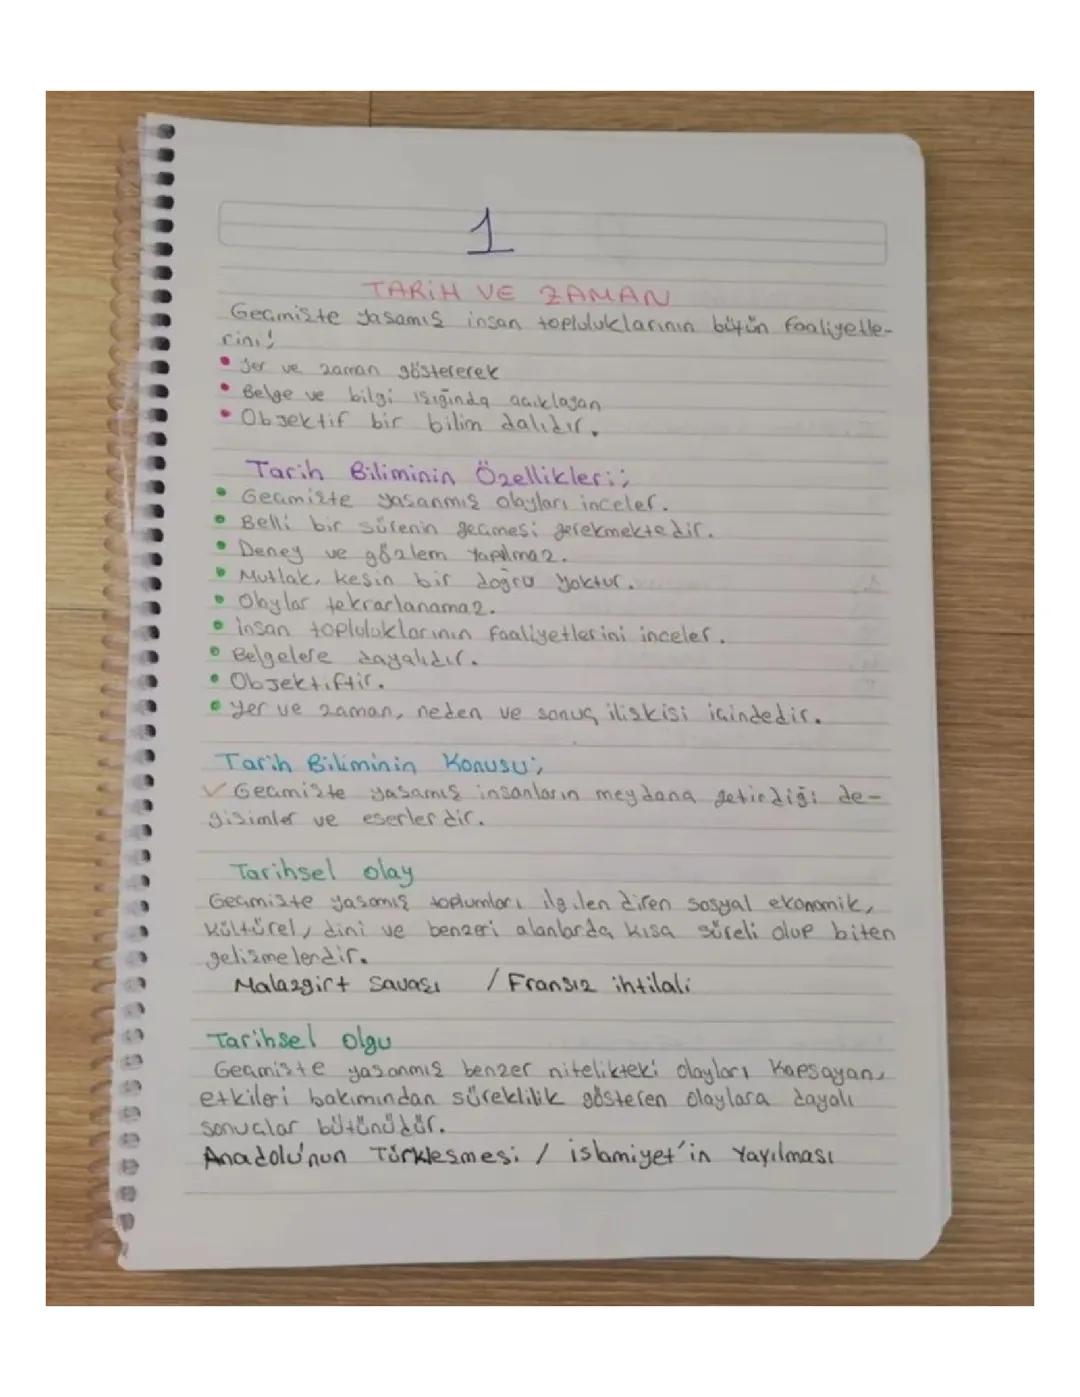 1
TARİH VE ZAMAN
Geçmişte yaşamış insan topluluklarının bütün faaliyetle-
rini;
• Yer ve zaman göstererek
• Belge ve bilgi ışığında açıklayan
• Objektif bir bilim dalıdır.
Tarih Biliminin Özellikleri;
• Geçmişte yaşanmış olayları inceler.
• Belli bir sürenin geçmesi gerekmektedir.
• Deney ve gözlem yapılmaz.
• Mutlak, kesin bir doğru yoktur.
• Olaylar tekrarlanamaz.
• İnsan topluluklarının faaliyetlerini inceler.
• Belgelere dayalıdır.
• Objektiftir.
• Yer ve zaman, neden ve sonuç ilişkisi içindedir.
Tarih Biliminin Konusu;
✓ Geçmişte yaşamış insanların meydana getirdiği de-
ğişimler ve eserlerdir.
Tarihsel olay
Geçmişte yaşamış toplumları ilgilendiren sosyal ekonomik,
kültürel, dini ve benzeri alanlarda kısa süreli olup biten
gelişmelerdir.
Malazgirt Savaşı / Fransız ihtilali
Tarihsel olgu
Geçmişte yaşanmış benzer nitelikteki olayları kapsayan,
etkileri bakımından süreklilik gösteren olaylara dayalı
sonuçlar bütünüdür.
Anadolu'nun Türkleşmesi / islamiyet'in Yayılması